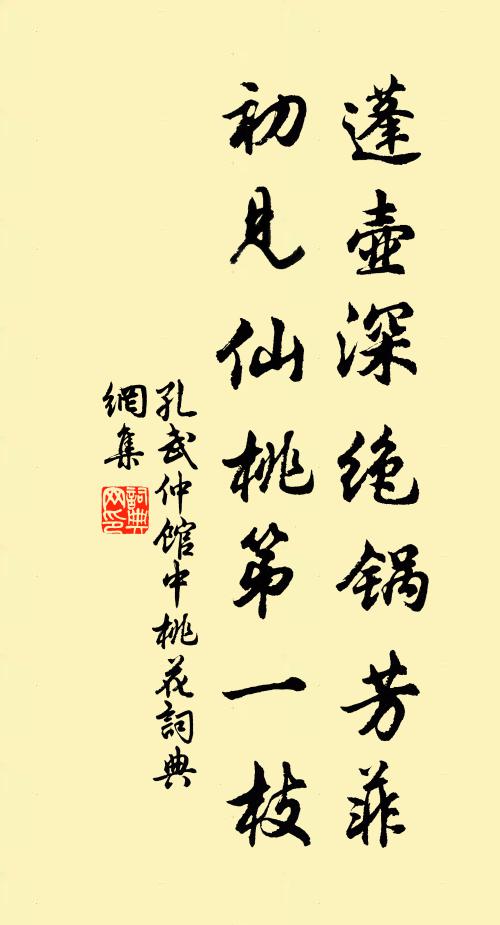 蓬壺深绝锅芳菲
初見仙桃第一枝
孔武仲馆中桃花詞典
網集
詞典
网印